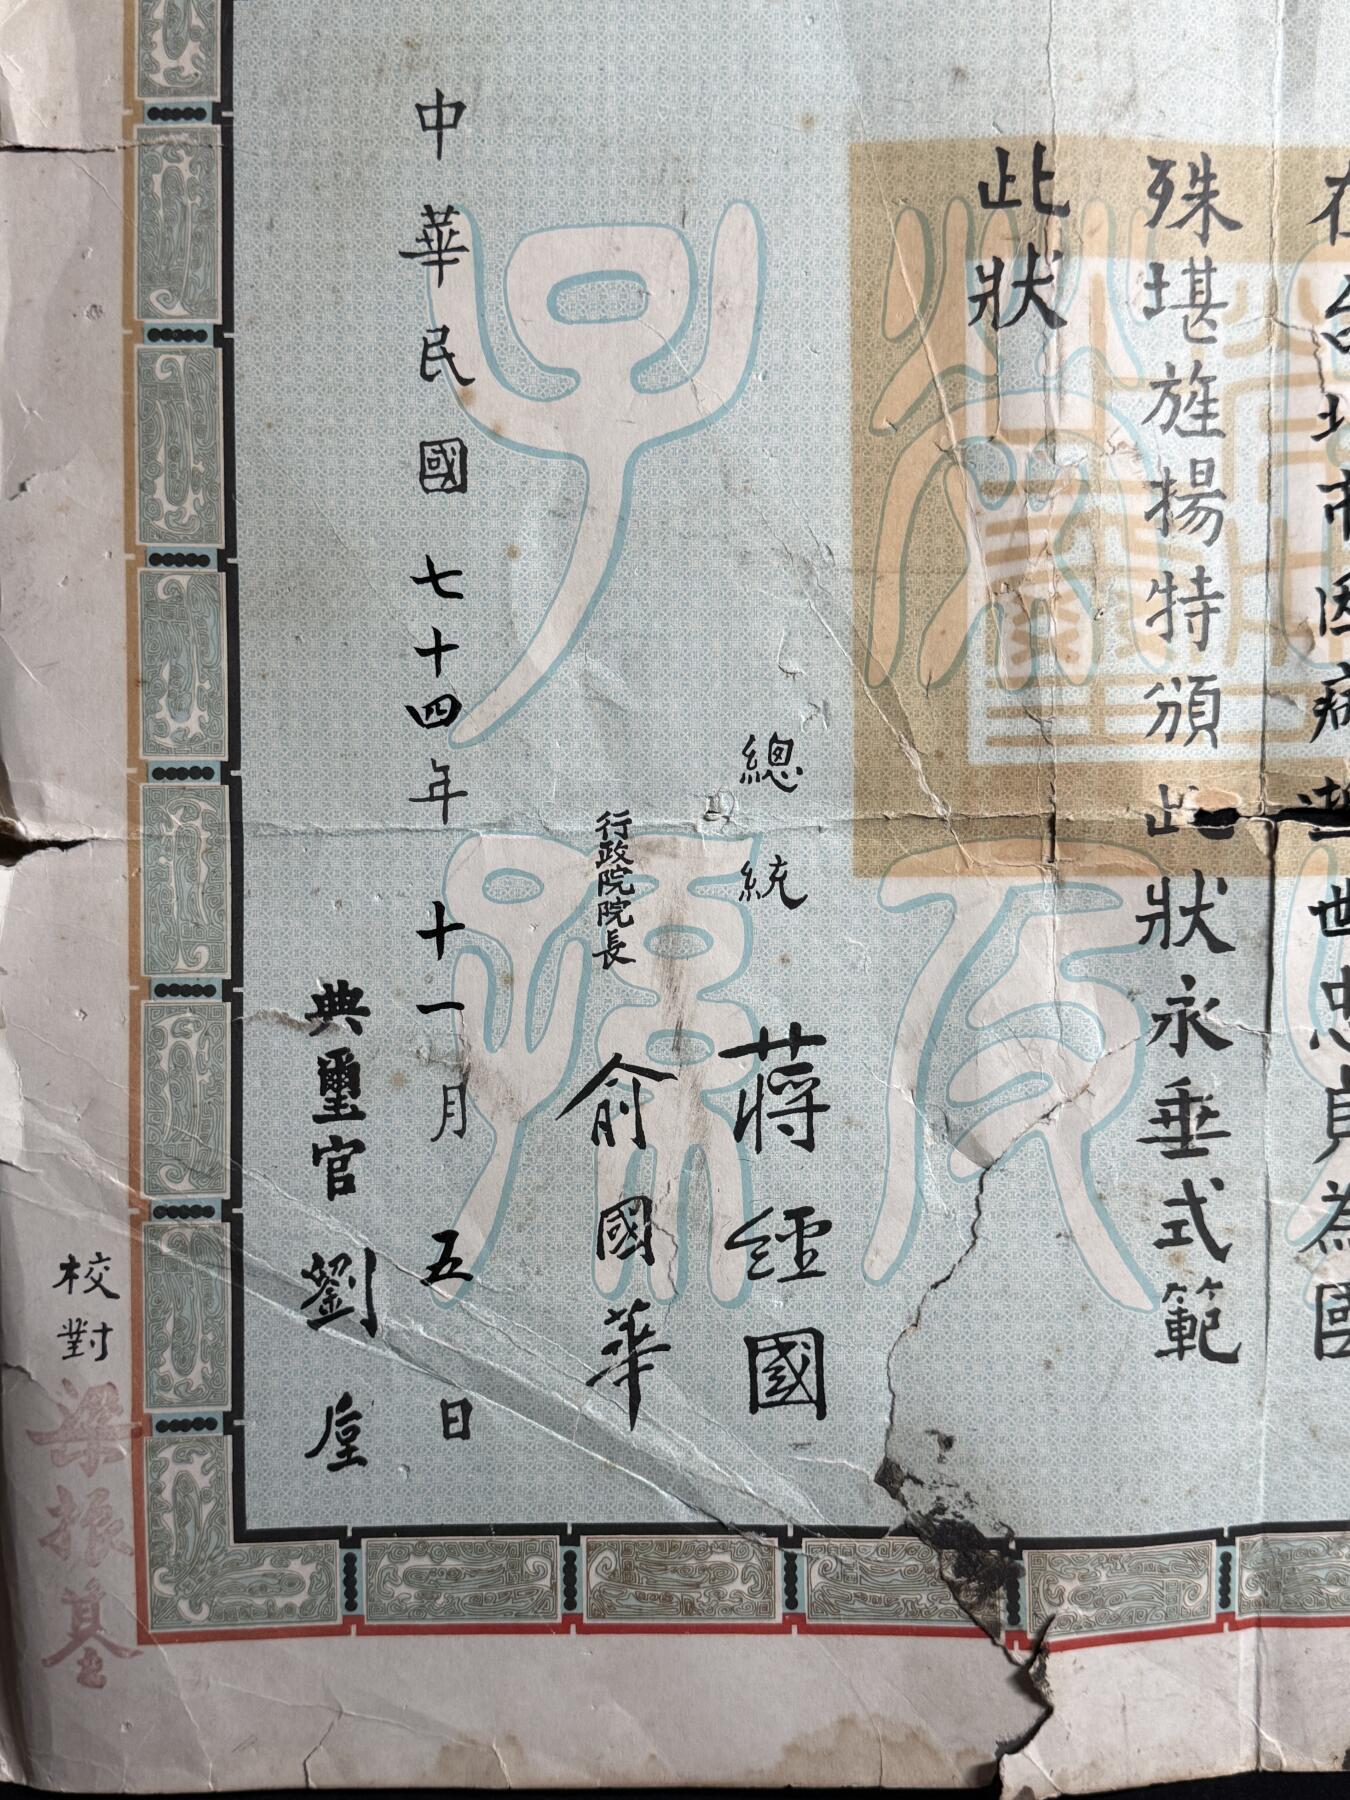 在台北市因病逝世忠貞為國
殊堪旌揚特頒此狀永垂式範
此狀
總統 蔣經國
行政院院長 俞國華
中華民國七十四年十一月五日
典璽官 劉垕
校對 梁振基